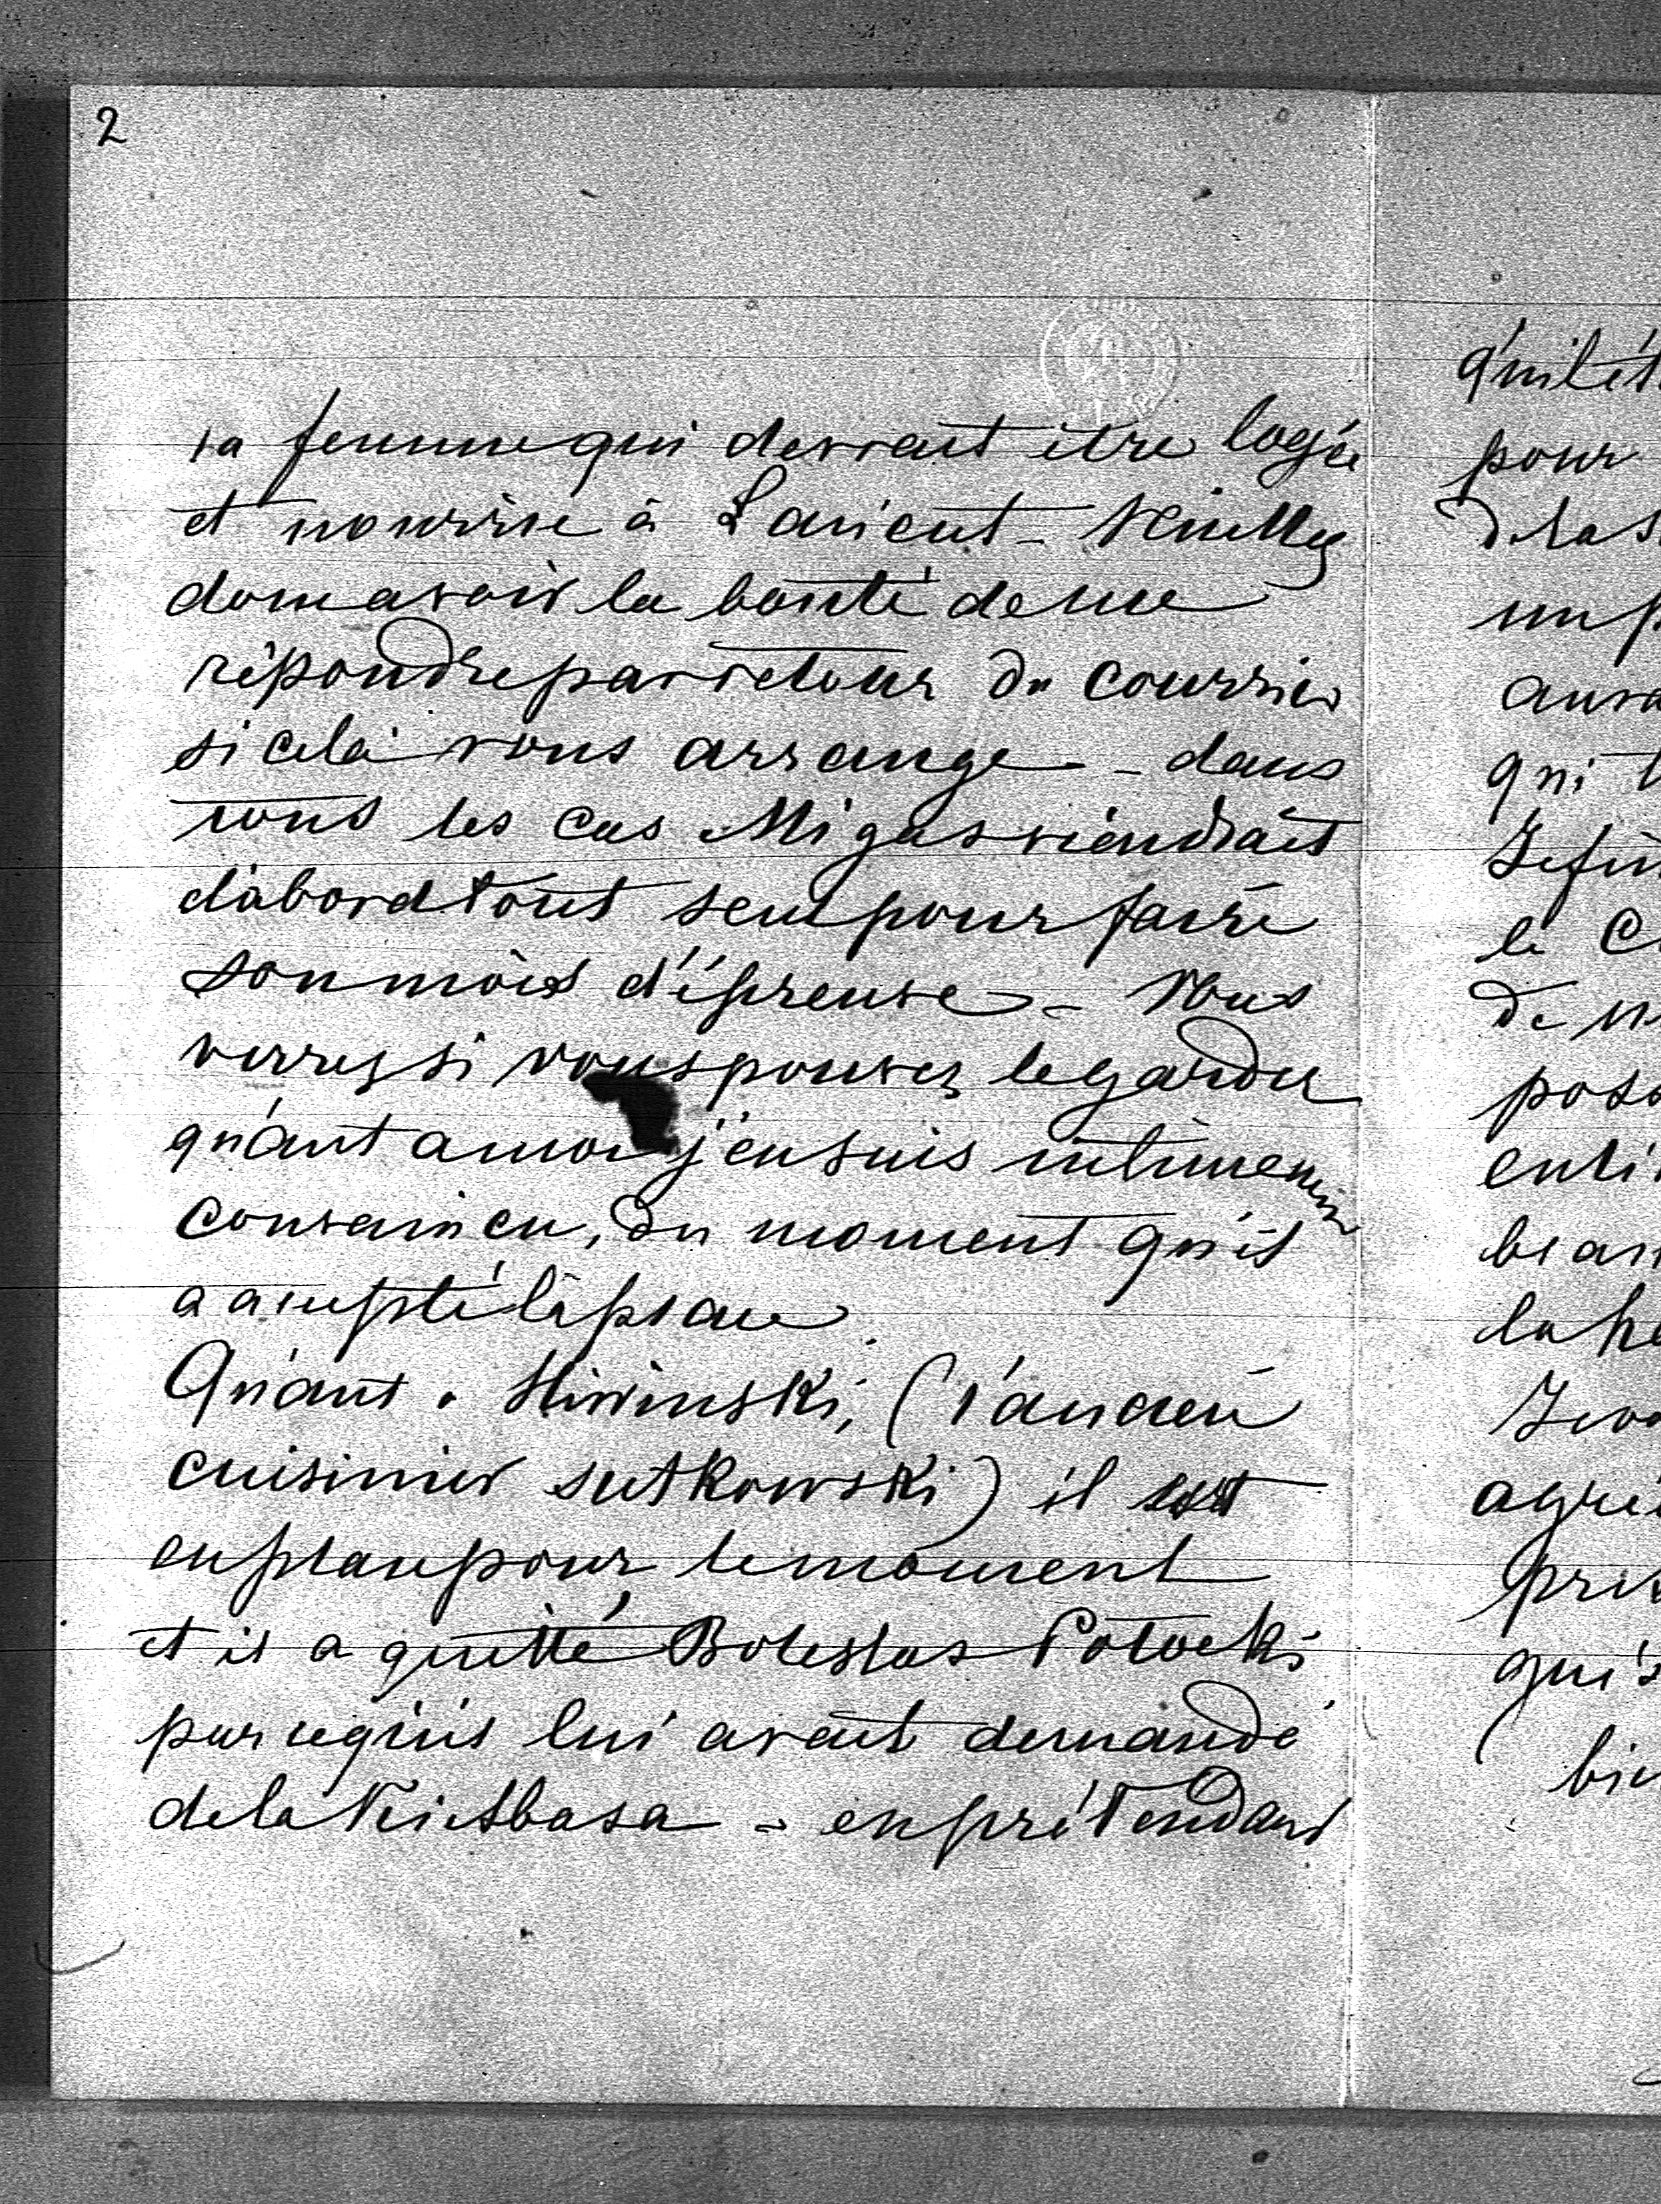 2
sa femme qui devrait être logée
et nourrie à Lancut - Veuillez
donc avoir la bonté de me
répondre par retour du courrier
si cela vous arrange - dans
tous les cas Migas viendrait
d'abord tout seul pour faire
son mois d'épreuve - Vous
verrez si vous pouvez le garder
qu'ant a moi j'en suis intimement
convaincu, du moment qu'il
a accepté la place.
Qu'ant a Sliwinski, (l'ancien
cuisinier Sutkowski) il est
en place pour le moment
et il a quitté Boleslas Potocki
parcequ'il lui avait demandé
de la Kietbasa - en prétendant
qu'il ét
pour
de la s
un p
aura
qui
Je fin
le C
de
poss
enti
beau
la
Je
agré
pri
qui s
bie